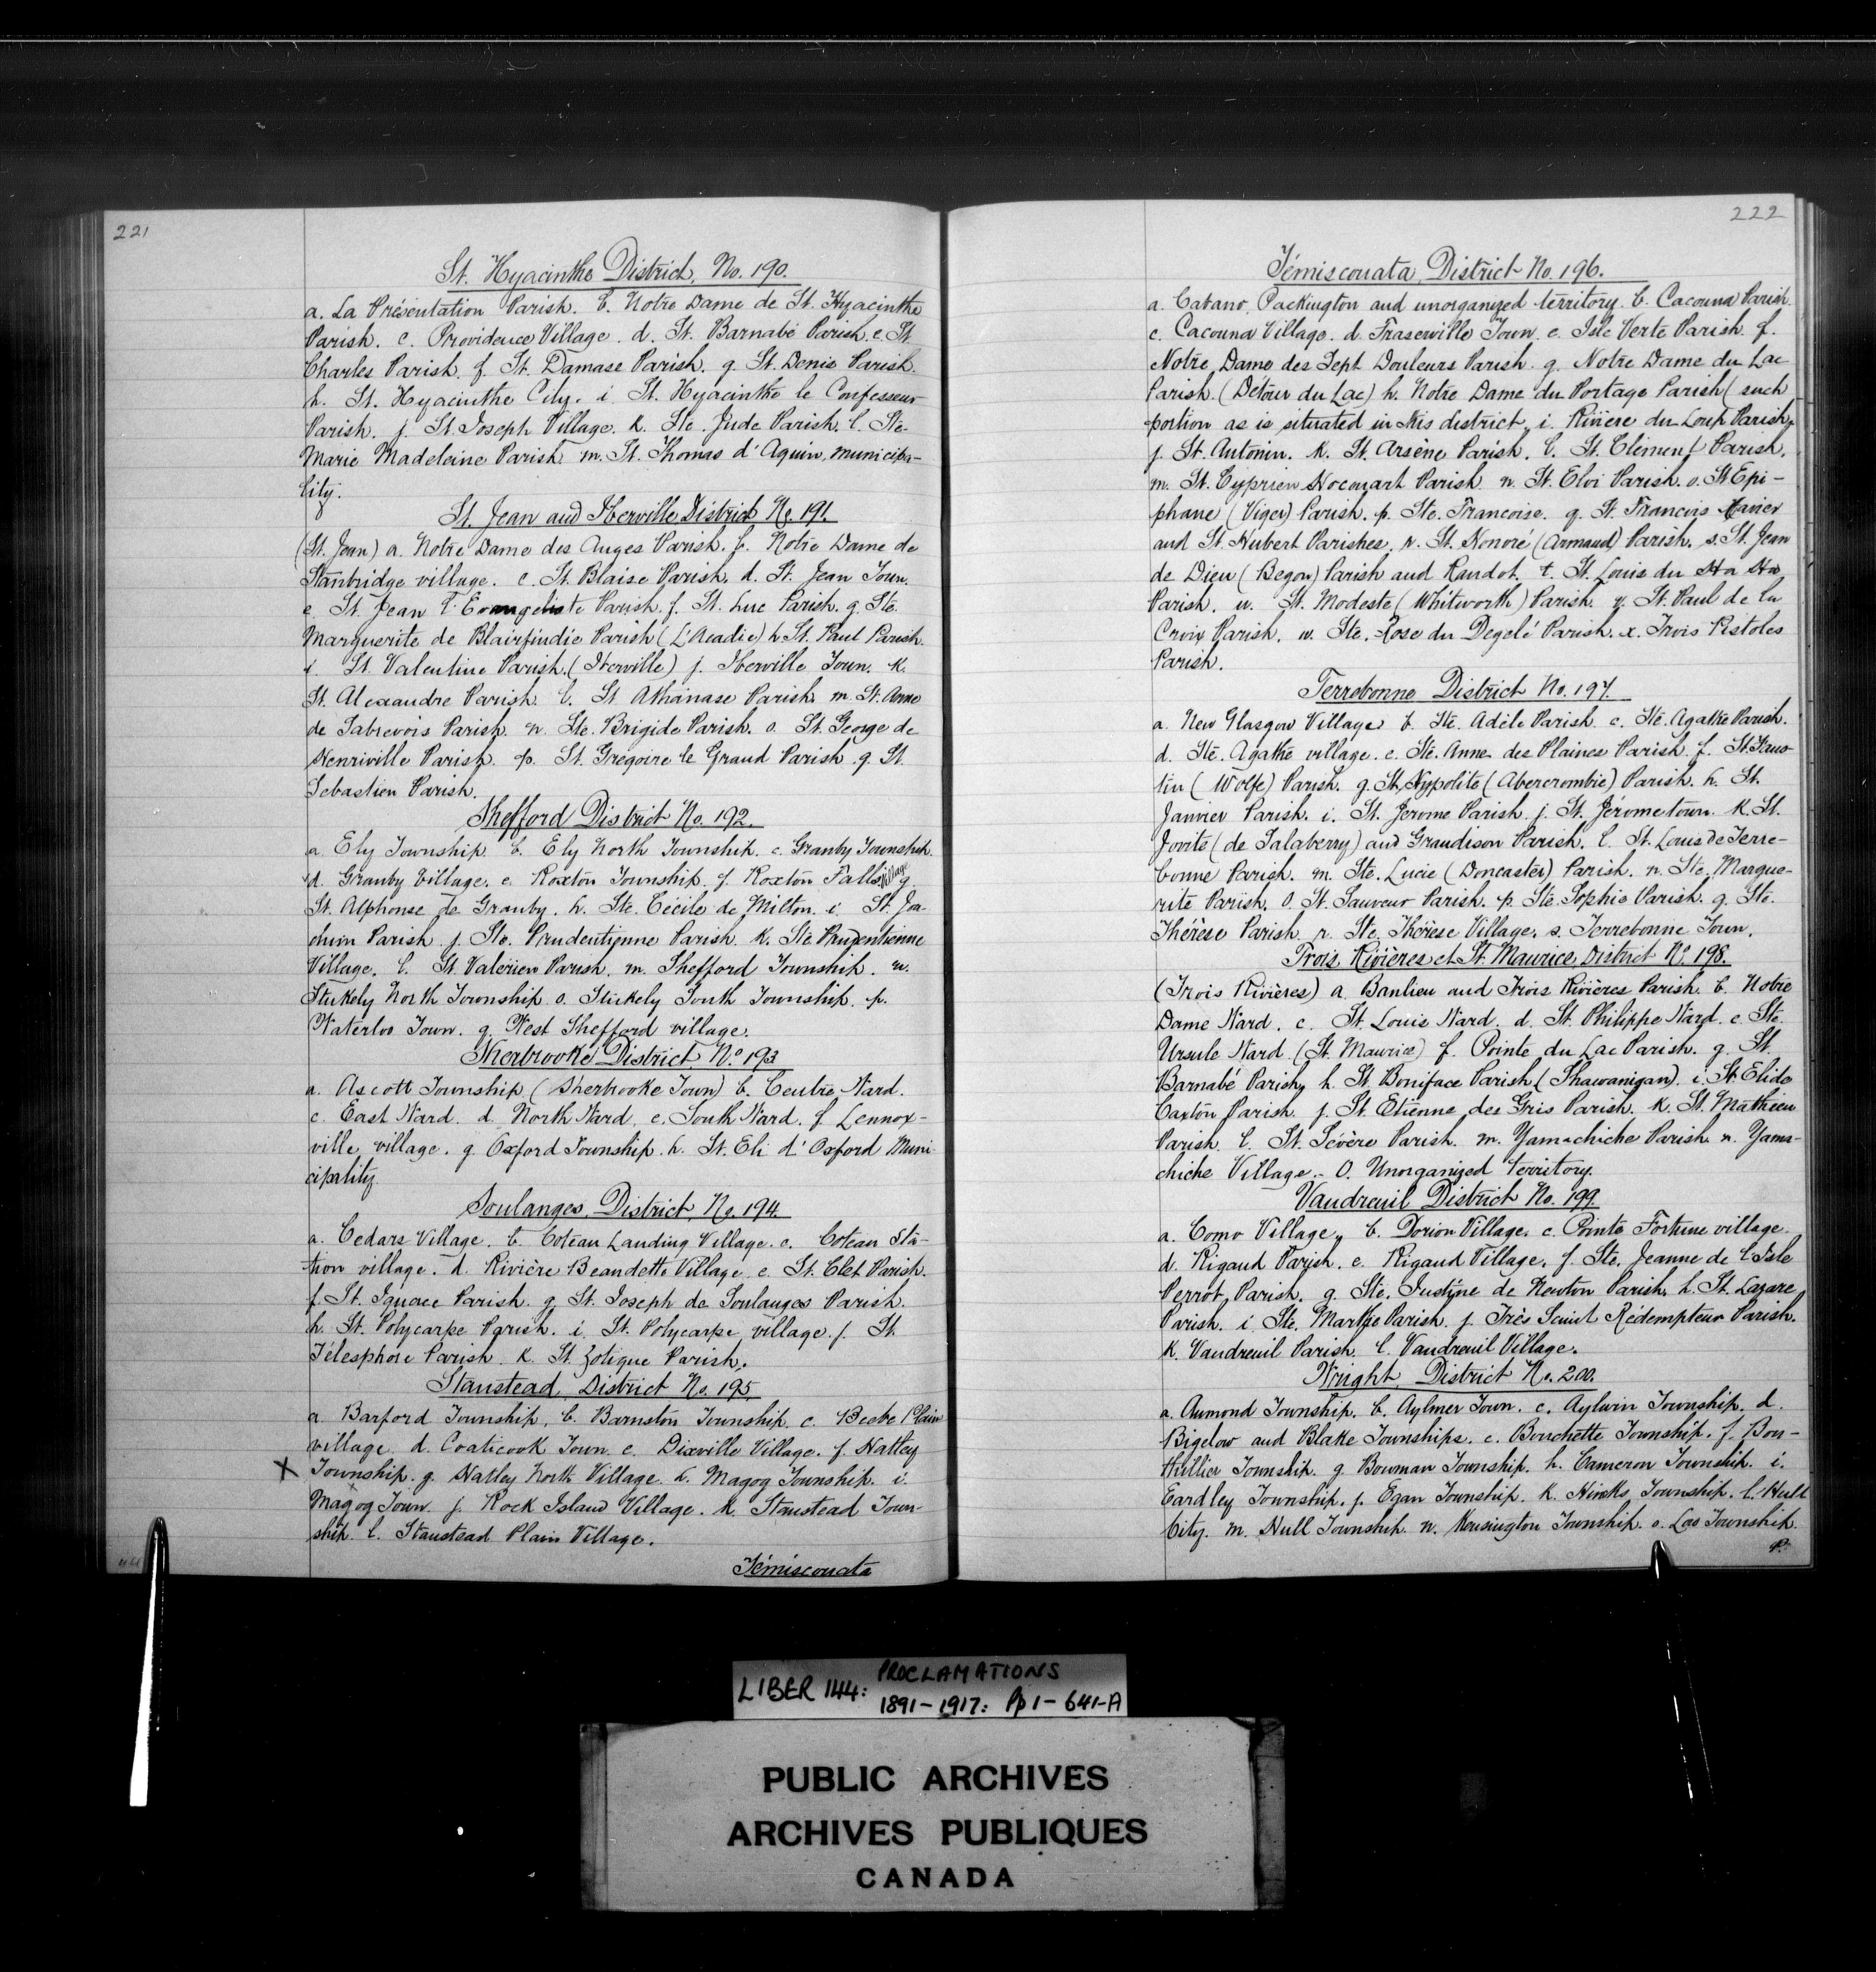 221
St. Hyacinthe District, No. 190.
a. La Présentation Parish. b. Notre Dame de St. Hyacinthe
Parish. c. Providence Village. d. St. Barnabé Parish. e. St.
Charles Parish. f. St. Damase Parish. g. St. Denis Parish.
h. St. Hyacinthe City. i. St. Hyacinthe le Confesseur
Parish. j. St Joseph Village. k. Ste. Jude Parish. l. Ste-
Marie Madeleine Parish. m. St. Thomas d'Aquin, municipa-
lity.
St. Jean and Iberville District, No. 191.
(St. Jean) a. Notre Dame des Anges Parish. b. Notre Dame de
Stanbridge village. c. St. Blaise Parish. d. St. Jean Town.
e St. Jean l'Evangeliste Parish. f. St. Luc Parish. g. Ste.
Marguerite de Blairfindie Parish (L'Acadie) h St. Paul Parish.
i. St. Valentine Parish. (Iberville) j. Iberville Town. k.
St. Alexandre Parish. l. St Athanase Parish m. St. Anne
de Sabrevois Parish. n. Ste. Brigide Parish. o. St. George de
Henriville Parish. p. St. Grégoire le Grand Parish. q. St.
Sebastien Parish.
Shefford District No. 192.
a. Ely Township. b. Ely North Township. c. Granby Township.
d. Granby Village. e. Roxton Township. f. Roxton Falls Village g.
St. Alphonse de Granby. h. Ste. Cécile de Milton. i. St. Joa-
chim Parish. j. Ste. Prudentienne Parish. k. Ste Prudentienne
Village. l. St. Valérien Parish. m. Shefford Township. n.
Stukely North Township. o. Stukely South Township. p.
Waterloo Town. q. West Shefford village.
Sherbrooke District, No. 193
a. Ascott Township (Sherbrooke Town) b. Centre Ward.
c. East Ward. d. North Ward. e. South Ward. f. Lennox-
ville village. g. Oxford Township. h. St. Eli d'Oxford Muni-
cipality.
Soulanges, District, No. 194.
a. Cedars Village. b. Coteau Landing Village. c. Coteau Sta-
tion village. d. Rivière Beaudette Village. e. St. Clet Parish.
f. St. Ignace Parish. g. St. Joseph de Soulanges Parish.
h. St. Polycarpe Parish. i. St. Polycarpe village. j. St.
Télesphore Parish. k. St. Zotique Parish.
Stanstead, District No. 195.
a. Barford Township. b. Barnston Township. c. Beebe Plain
village. d. Coaticook Town. e. Dixville Village. f. Hatley
X Township. g. Hatley North Village. h. Magog Township. i.
Magog Town. j. Rock Island Village. k. Stanstead Town-
ship. l. Stanstead Plain Village.
Témiscouata
222
Témiscouata, District No. 196.
a. Cabano, Packington and unorganized territory. b. Cacouna Parish.
c. Cacouna Village. d. Fraserville Town. e. Isle Verte Parish. f.
Notre Dame des Sept Douleurs Parish. g. Notre Dame du Lac
Parish. (Détour du Lac) h. Notre Dame du Portage Parish (such
portion as is situated in this district. i. Rivière du Loup Parish.
j. St. Antonin. k. St. Arsène Parish. l. St. Clément Parish.
m. St. Cyprien Hocquart Parish. n. St. Eloi Parish. o. St Epi-
phane (Viger) Parish. p. Ste. Francoise. q. St. Francois Xavier
and St. Hubert Parishes. r. St. Honoré (Armand) Parish. s. St. Jean
de Dieu (Begon) Parish and Raudot. t. St. Louis du Ha Ha
Parish. u. St. Modeste (Whitworth) Parish. v. St. Paul de la
Croix Parish. w. Ste. Rose du Degelé Parish. x. Trois Pistoles
Parish.
Terrebonne District No. 197.
a. New Glasgow Village. b. Ste. Adèle Parish. c. Ste. Agathe Parish.
d. Ste. Agathe village. e. Ste. Anne des Plaines Parish. f. St. Faus-
tin (Wolfe) Parish. g. St. Hyppolite (Abercrombie) Parish. h. St.
Janvier Parish. i. St. Jerome Parish. j. St. Jérome town. k. St.
Jovite (de Salaberry) and Grandison Parish. l. St. Louis de Terre-
bonne Parish. m. Ste. Lucie (Doncaster) Parish. n. Ste. Margue-
rite Parish. o. St. Sauveur Parish. p. Ste. Sophie Parish. q. Ste.
Thérèse Parish. r. Ste. Thérèse Village. s. Terrebonne Town.
Trois Rivières et St. Maurice, District No. 198.
(Trois Rivières) a. Banlieu and Trois Rivières Parish. b. Notre
Dame Ward. c. St. Louis Ward. d. St. Philippe Ward. e. Ste.
Ursule Ward. (St. Maurice) f. Pointe du Lac Parish. g. St.
Barnabé Parish. h. St. Boniface Parish (Shawanigan). i. St. Elide
Caxton Parish. j. St. Etienne des Gris Parish. k. St. Mathieu
Parish. l. St. Sévère Parish. m. Yamachiche Parish. n. Yama-
chiche Village. O. Unorganized territory.
Vaudreuil District No. 199.
a. Como Village. b. Dorion Village. c. Pointe Fortune village.
d. Rigaud Parish. e. Rigaud Village. f. Ste. Jeanne de l'Isle
Perrot Parish. g. Ste. Justine de Newton Parish. h. St. Lazare
Parish. i. Ste. Marthe Parish. j. Très Saint Rédempteur Parish.
k. Vaudreuil Parish. l. Vaudreuil Village.
Wright, District No. 200.
a. Aumond Township. b. Aylmer Town. c. Aylwin Township. d.
Bigelow and Blake Townships. e. Bouchette Township. f. Bou-
thillier Township. g. Bowman Township. h. Cameron Township. i.
Eardley Township. j. Egan Township. k. Hincks Township. l. Hull
City. m. Hull Township. n. Kensington Township. o. Los Township.
p.
LIBER 144: PROCLAMATIONS
1891-1917: Pp 1-641-A
PUBLIC ARCHIVES
ARCHIVES PUBLIQUES
CANADA